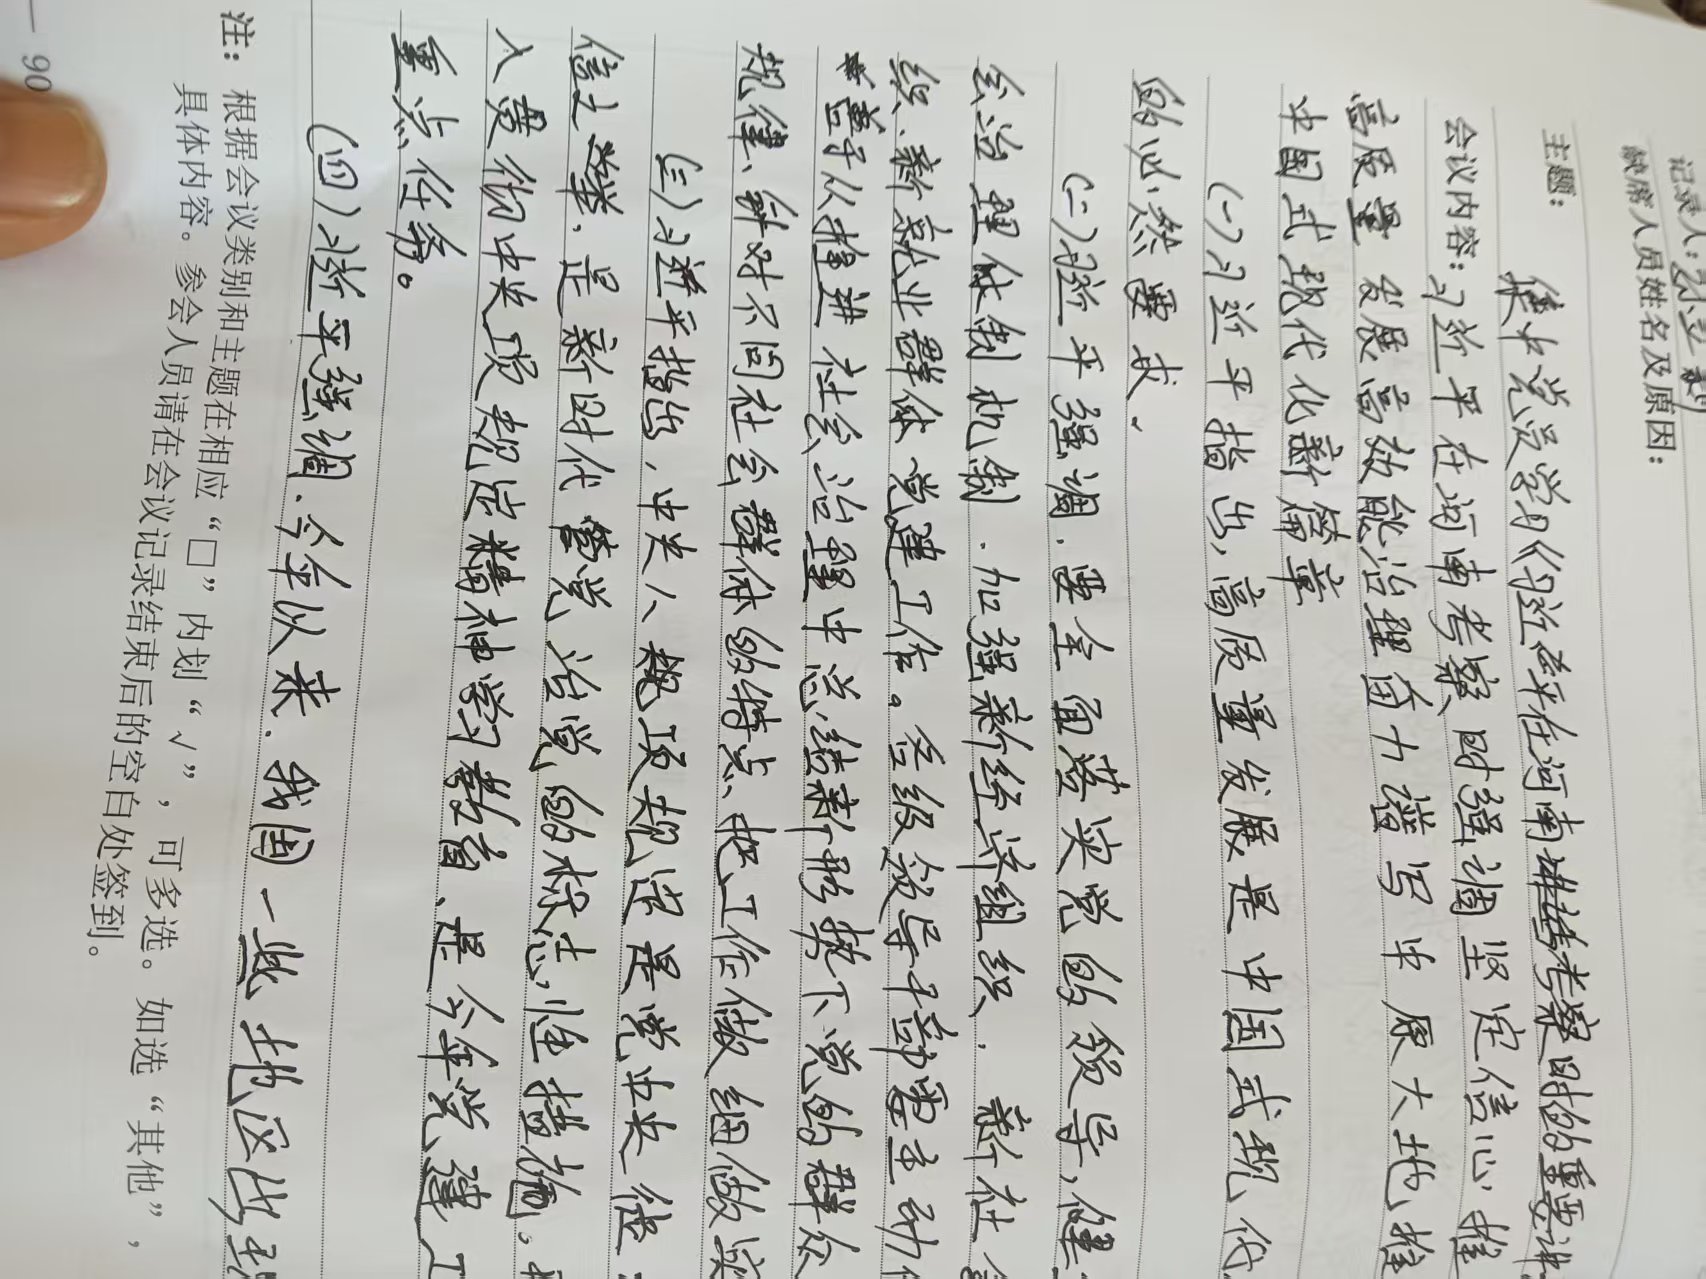 记录人:
缺席人员姓名及原因:
主题: 集中党员学习《习近平在河南考察时的重要讲
会议内容: 习近平在河南考察时强调坚定信心推
高质量发展高效能治理奋力谱写中原大地推
中国式现代化新篇章
(一)习近平指出,高质量发展是中国式现代
的必然要求.
(二)习近平强调.要全面落实党的领导,健
会治理体制机制.加强新经济组织.新社会
织.新就业群体党建工作。各级领导干部要主动
善于从推进社会治理中总结新形势下党的群众
规律、针对不同社会群体的特点、把工作做细做实
(三)习近平指出,中央八项规定是党中央徙
信之举.是新时代管党治党的标志性措施。
入贯彻中央八项规定精神学习教育、是今年党建工
重点任务。
(四)习近平强调.今年以来.我国一些地区
注:根据会议类别和主题在相应“□”内划“√”,可多选。如选“其他”,
具体内容。参会人员请在会议记录结束后的空白处签到。
90